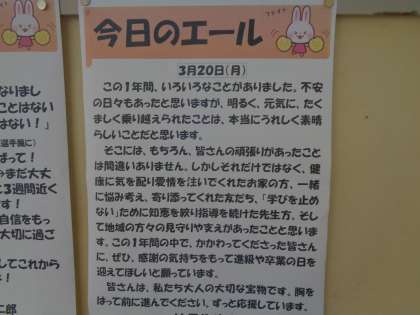 今日のエール
3月20日(月)
この1年間、いろいろなことがありました。不安
の日々もあったと思いますが、明るく、元気に、たく
ましく乗り越えられたことは、本当にうれしく素晴
らしいことだと思います。
そこには、もちろん、皆さんの頑張りがあったこと
は間違いありません。しかしそれだけではなく、健
康に気を配り愛情を注いでくれたお家の方、一緒
に悩み考え、寄り添ってくれた友だち、「学びを止め
ない」ために知恵を絞り指導を続けた先生方、そし
て地域の方々の見守りや支えがあったことと思いま
す。この1年間の中で、かかわってくださった皆さん
に、ぜひ、感謝の気持ちをもって進級や卒業の日を
迎えてほしいと願っています。
皆さんは、私たち大人の大切な宝物です。胸を
はって前に進んでください。ずっと応援しています。
なりまし
ことはない
はない!」
ばって!
やまだ大丈
と3週間近く
です!
自信をもっ
大切に過ご
してこれから
二郎